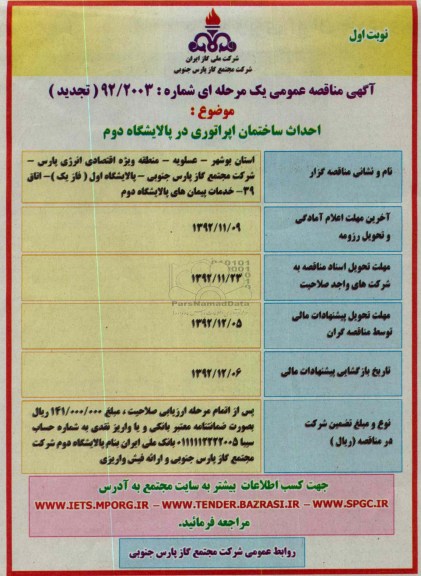 نوبت اول
شرکت ملی گاز ایران
شرکت مجتمع گاز پارس جنوبی
آگهی مناقصه عمومی یک مرحله ای شماره : ۹۲/۲۰۰۳ ( تجدید )
موضوع :
احداث ساختمان اپراتوری در پالایشگاه دوم
نام و نشانی مناقصه گزار
استان بوشهر – عسلویه – منطقه ویژه اقتصادی انرژی پارس –
شرکت مجتمع گاز پارس جنوبی – پالایشگاه اول ( فاز یک )– اتاق
۳۹- خدمات پیمان های پالایشگاه دوم
آخرین مهلت اعلام آمادگی
و تحویل رزومه
۱۳۹۲/۱۱/۰۹
مهلت تحویل اسناد مناقصه به
شرکت های واجد صلاحیت
۱۳۹۲/۱۱/۲۳
ParsNamadData
مهلت تحویل پیشنهادات مالی
توسط مناقصه گران
۱۳۹۲/۱۲/۰۵
تاریخ بازگشایی پیشنهادات مالی
۱۳۹۲/۱۲/۰۶
نوع و مبلغ تضمین شرکت
در مناقصه (ریال )
پس از اتمام مرحله ارزیابی صلاحیت ، مبلغ ۱۴۱/۰۰۰/۰۰۰ ریال
بصورت ضمانتنامه معتبر بانکی و یا واریز نقدی به شماره حساب
سیبا ۰۱۱۱۱۱۲۲۲۲۰۰۵ بانک ملی ایران بنام پالایشگاه دوم شرکت
مجتمع گاز پارس جنوبی و ارائه فیش واریزی
جهت کسب اطلاعات بیشتر به سایت مجتمع به آدرس
WWW.IETS.MPORG.IR – WWW.TENDER.BAZRASI.IR – WWW.SPGC.IR
مراجعه فرمائید.
روابط عمومی شرکت مجتمع گاز پارس جنوبی